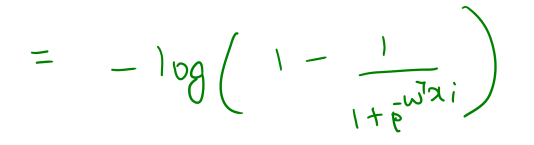 = - log( 1 - \frac{1}{1 + e^{-w^T x_i}} )